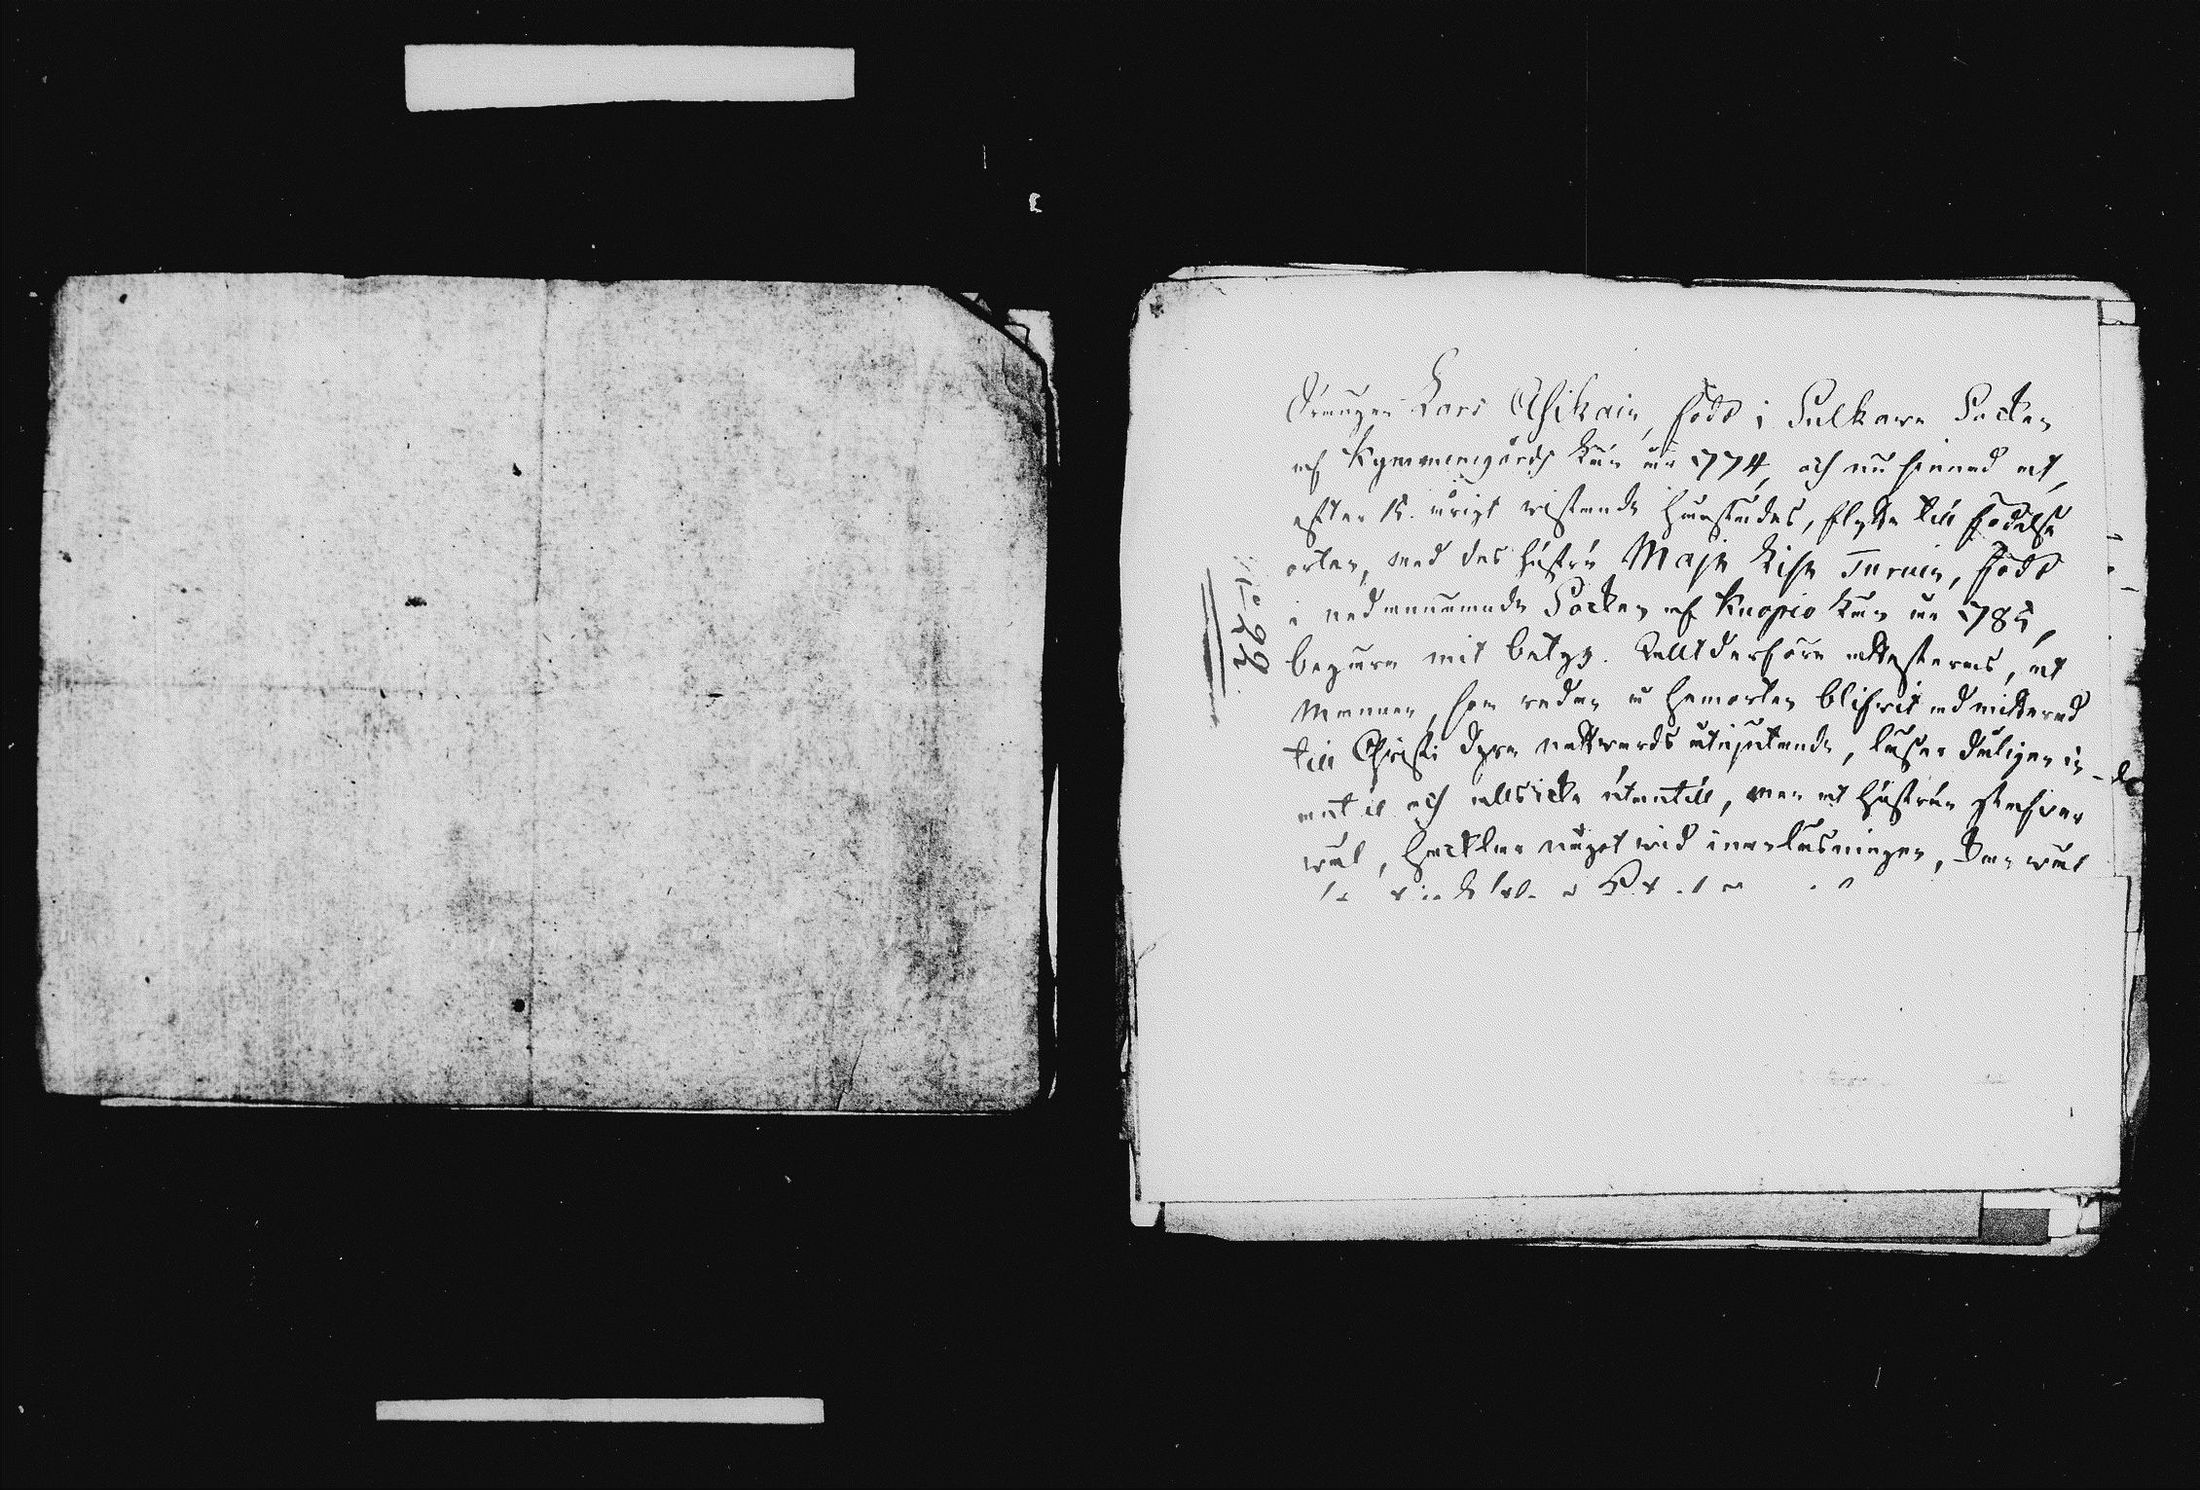 Drängen Lars Asikain, född i Sulkava Socken
af Kymmenegårds Län år 1774, och nu sinnad at,
efter 12. årigt wistande härstädes, flytta till födelse
orten, med des hustru Maja Lisa Turuin, född
i nedannämnde Socken af Kuopio Län år 1785,
begära mit betyg. Rättderföre attesteras, at
Mannen, som redan i hemorten blifvit admitterad
till Christi dyra nattwards åtnjutande, läser dåligen in-
antil och alsicke utantill, men at hustrun stafvar
wäl, hacklar något wid innanläsningen, kan wäl
No 29.